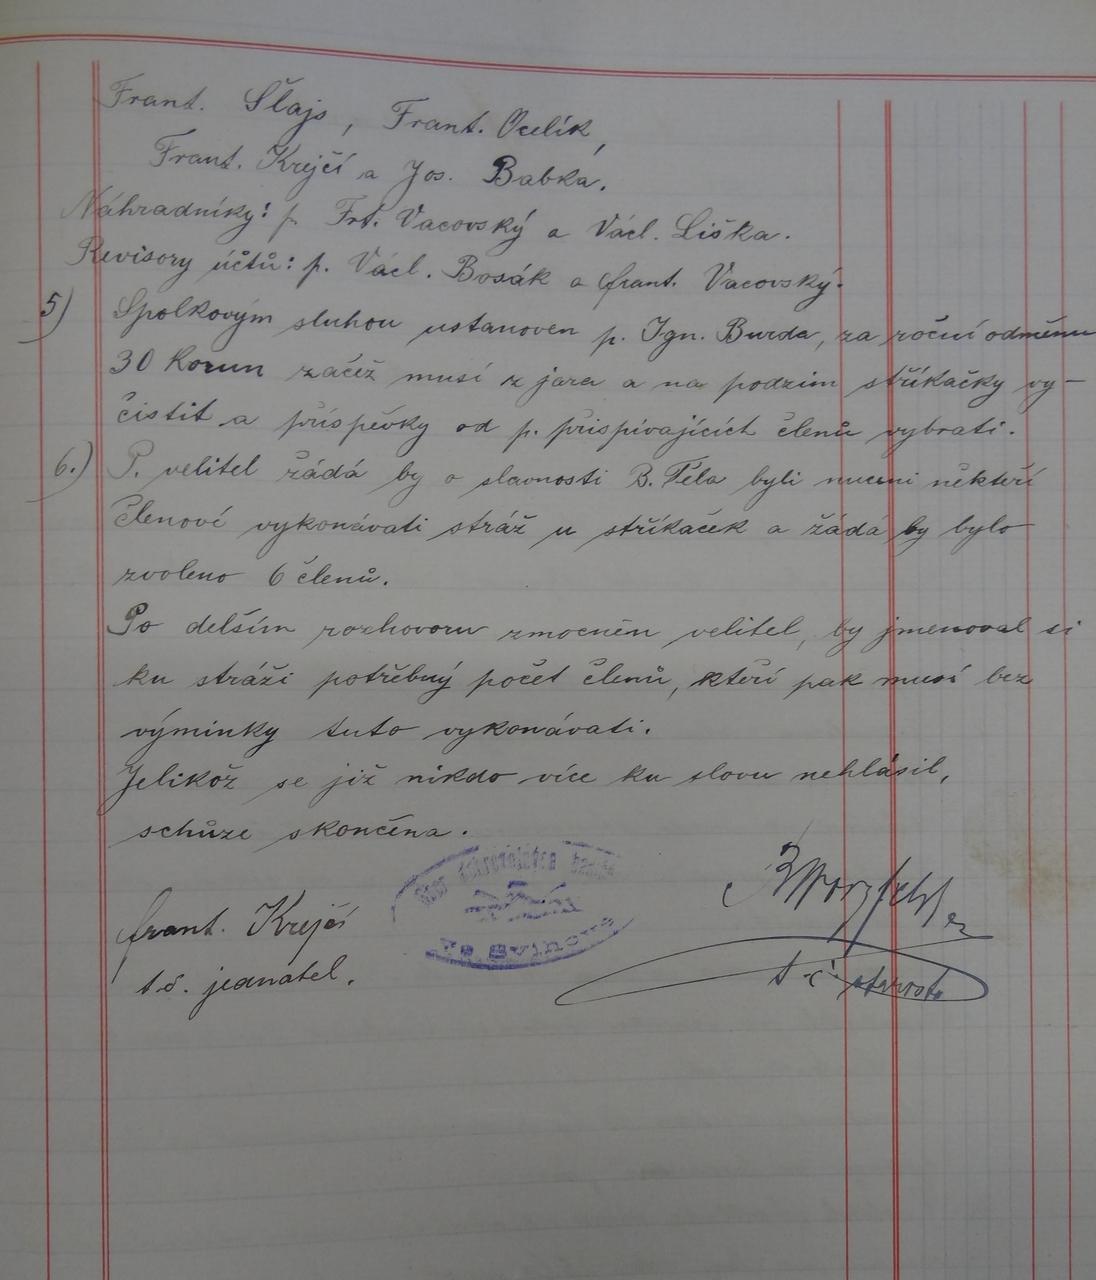 Frant. Šlajs, Frant. Ocelík,
Frant. Krejčí a Jos. Babka.
Náhradníky: p. Frt. Vacovský a Václ. Liška.
Revisory účtů: p. Václ. Bosák a Frant. Vacovský.
5) Spolkovým sluhou ustanoven p. Ign. Burda, za roční odměnu
30 Korun začež musí z jara a na podzim stříkačky vy-
čistit a příspěvky od p. přispívajících členů vybrati.
6.) P. velitel žádá by o slavnosti B. Těla byli nuceni někteří
členové vykonávati stráž u stříkaček a žádá by bylo
zvoleno 6 členů.
Po delším rozhovoru zmocněn velitel, by jmenoval si
ku stráži potřebný počet členů, kteří pak musí bez
výminky tuto vykonávati.
Jelikož se již nikdo více ku slovu nehlásil,
schůze skončena.
Sbor dobrovolných
Svinový
Frant. Krejčí
t. č. jednatel.
t. č. starosta